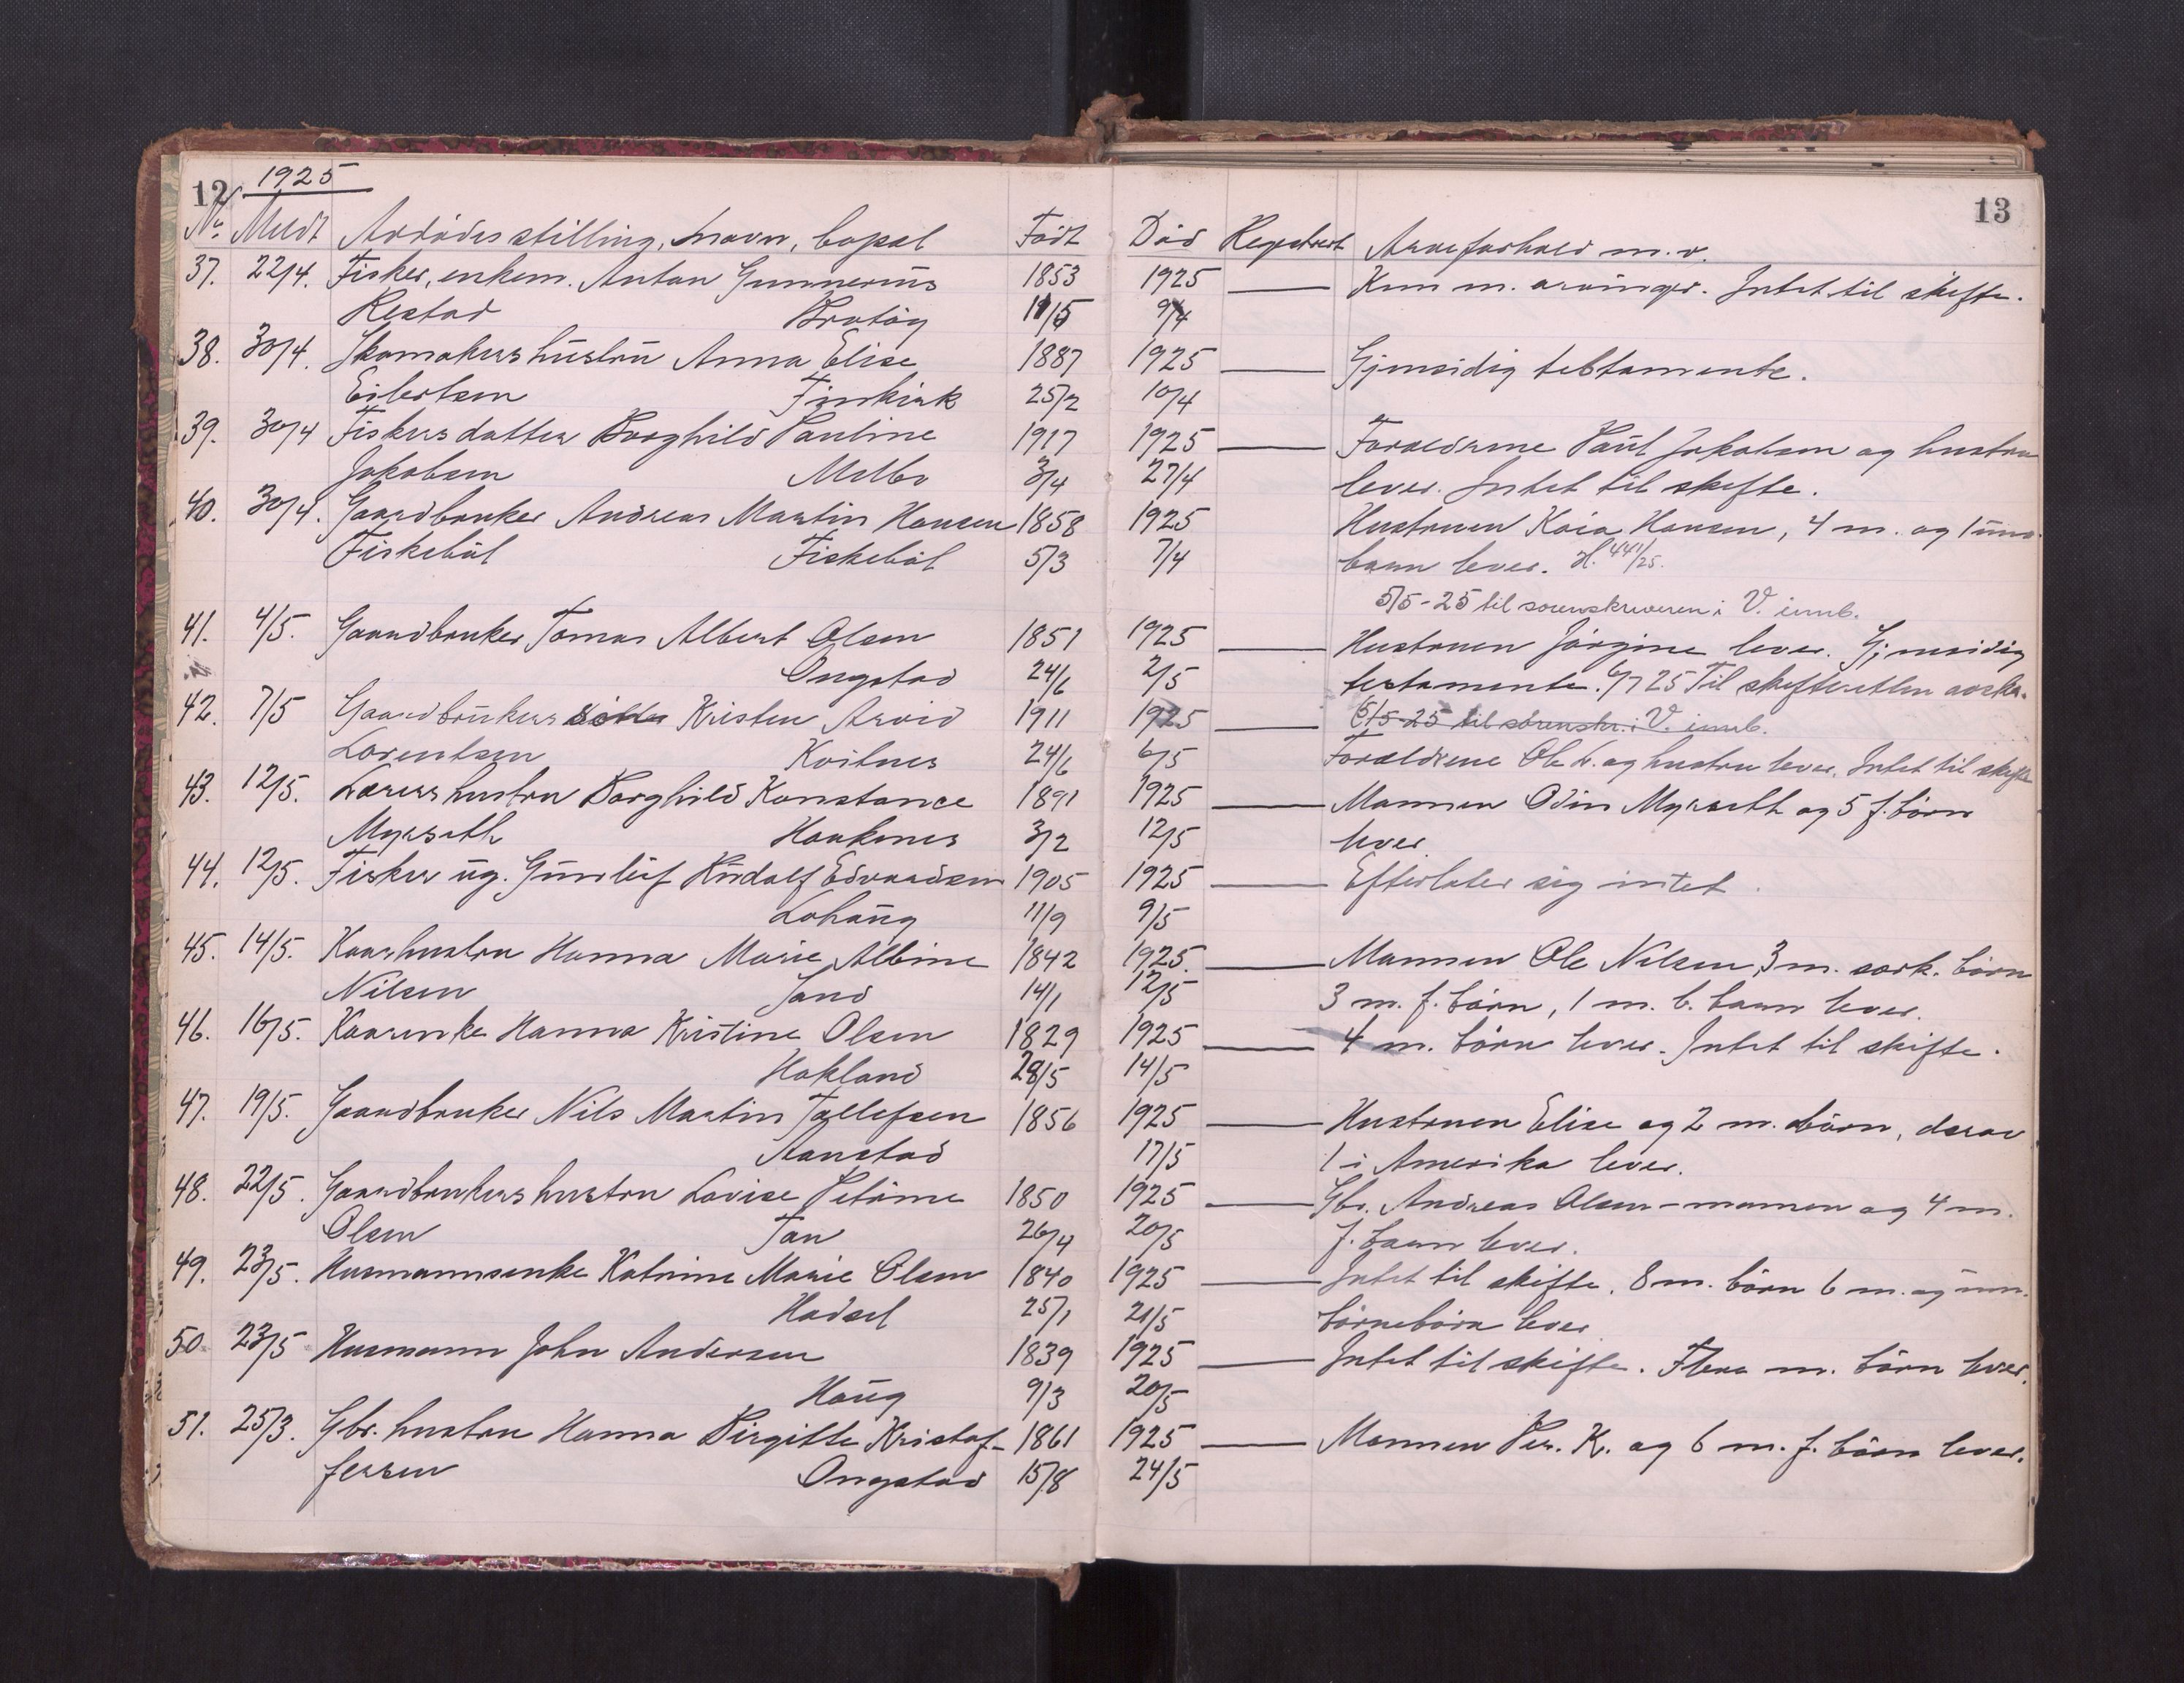 12 1925
Nr. Meldt Avdödes stilling, navn, bopæl Födt Död Registrert Arveforhold m. v.
37. 22/4. Fisker, enkem. Anton Gunnerius 1853 1925 — Kun m. arvinger. Intet til skifte.
Restad Bratöy 11/5 9/4
38. 30/4. Skomakers hustru Anna Elise 1887 1925 — Gjensidig testamente.
Eilertsen 25/2 10/4
39. 30/4 Fiskers datter Borghild Pauline 1917 1925 — Forældrene Paul Jakobsen og hustru
Jakobsen Melbo 3/4 27/4 lever. Intet til skifte.
40. 30/4. Gaardbruker Andreas Martin Hansen 1858 1925 Hustruen Kaia Hansen, 4 m. og 1 um.
Fiskebøl Fiskebøl 5/3 7/4 barn lever. H. 441/25.
5/5-25 til sorenskriveren i V. innb.
41. 4/5. Gaardbruker Tomas Albert Olsen 1851 1925 — Hustruen Jörgine lever. Gjensidig
Ongstad 24/6 2/5 testamente. 6/7 25 Til skifteretten
42. 7/5 Gaardbrukers Kristen Arvid 1911 1925 — 5/5-25 til sorenskr. i V. innb.
Lorentsen Kvitnes 24/6 6/5 Forældrene Ole L. og hustru lever. Intet til skifte
43. 12/5. Lærers hustru Borghild Konstance 1891 1925 — Mannen Odin Myrseth og 5 f. börn
Myrseth Haukenes 3/2 12/5 lever
44. 12/5. Fisker ug. Gunleif Rudolf Edvardsen 1905 1925 — Efterlater sig intet.
Lohaug 11/9 9/5
45. 14/5. Kaarhustru Hanna Marie Albine 1842 1925. — Mannen Ole Nilsen, 3 m. særk. börn
Nilsen Sand 14/1 12/5 3 m. f. börn, 1 m. b. barn lever.
46. 16/5. Kaarenke Hanna Kristine Olsen 1829 1925 — 4 m. börn lever. Intet til skifte.
Hokland 28/5 14/5
47. 19/5. Gaardbruker Nils Martin Tollefsen 1856 1925 — Hustruen Elise og 2 m. börn, derav
Aanstad 17/5 1 i Amerika lever.
48. 22/5. Gaardbrukers hustru Lovise Petrine 1850 1925 — Gbr. Andreas Olsen - mannen og 4 m.
Olsen Tan 26/4 20/5 f. barn lever.
49. 23/5. Husmannsenke Katrine Marie Olsen 1840 1925 — Intet til skifte. 8 m. börn 6 m. og um.
Hadsel 25/1 21/5 börnebörn lever
50. 23/5 Husmann John Andersen 1839 1925 — Intet til skifte. Flere m. börn lever.
Haug 9/3 20/5
51. 25/3. Gbr. hustru Hanna Birgitte Kristof- 1861 1925 — Mannen Per. K. og 6 m. f. börn lever.
fersen Ongstad 15/8 24/5
13